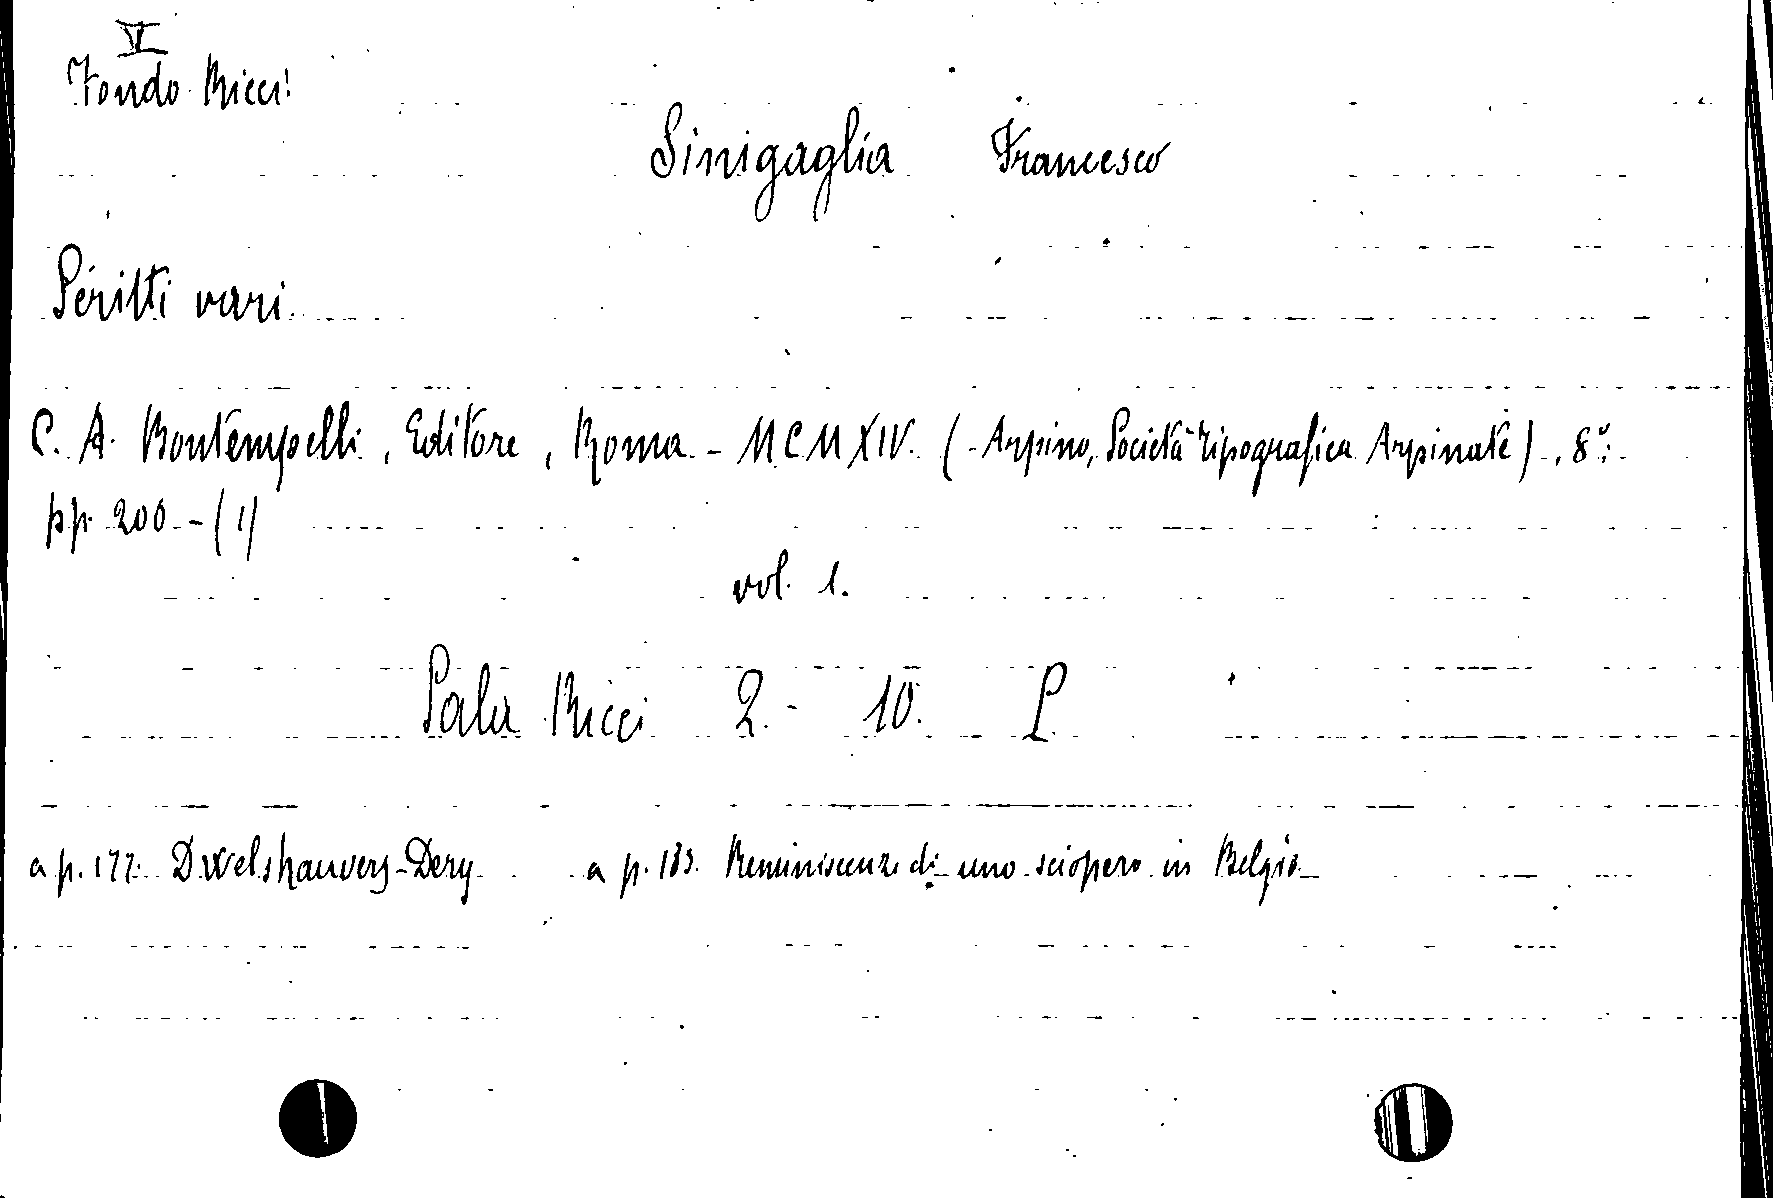 V
Fondo Ricci
Sinigaglia Francesco
Scritti vari
C. A. Bontempelli, Editore, Roma - MCMXIV. (Arpino, Società Tipografica Arpinate), 8°.
pp. 200 - (1)
vol. 1.
Sala Ricci 2. - 10. L
a p. 177: Dwelshauvers-Dery a p. 183. Reminiscenze di uno sciopero in Belgio